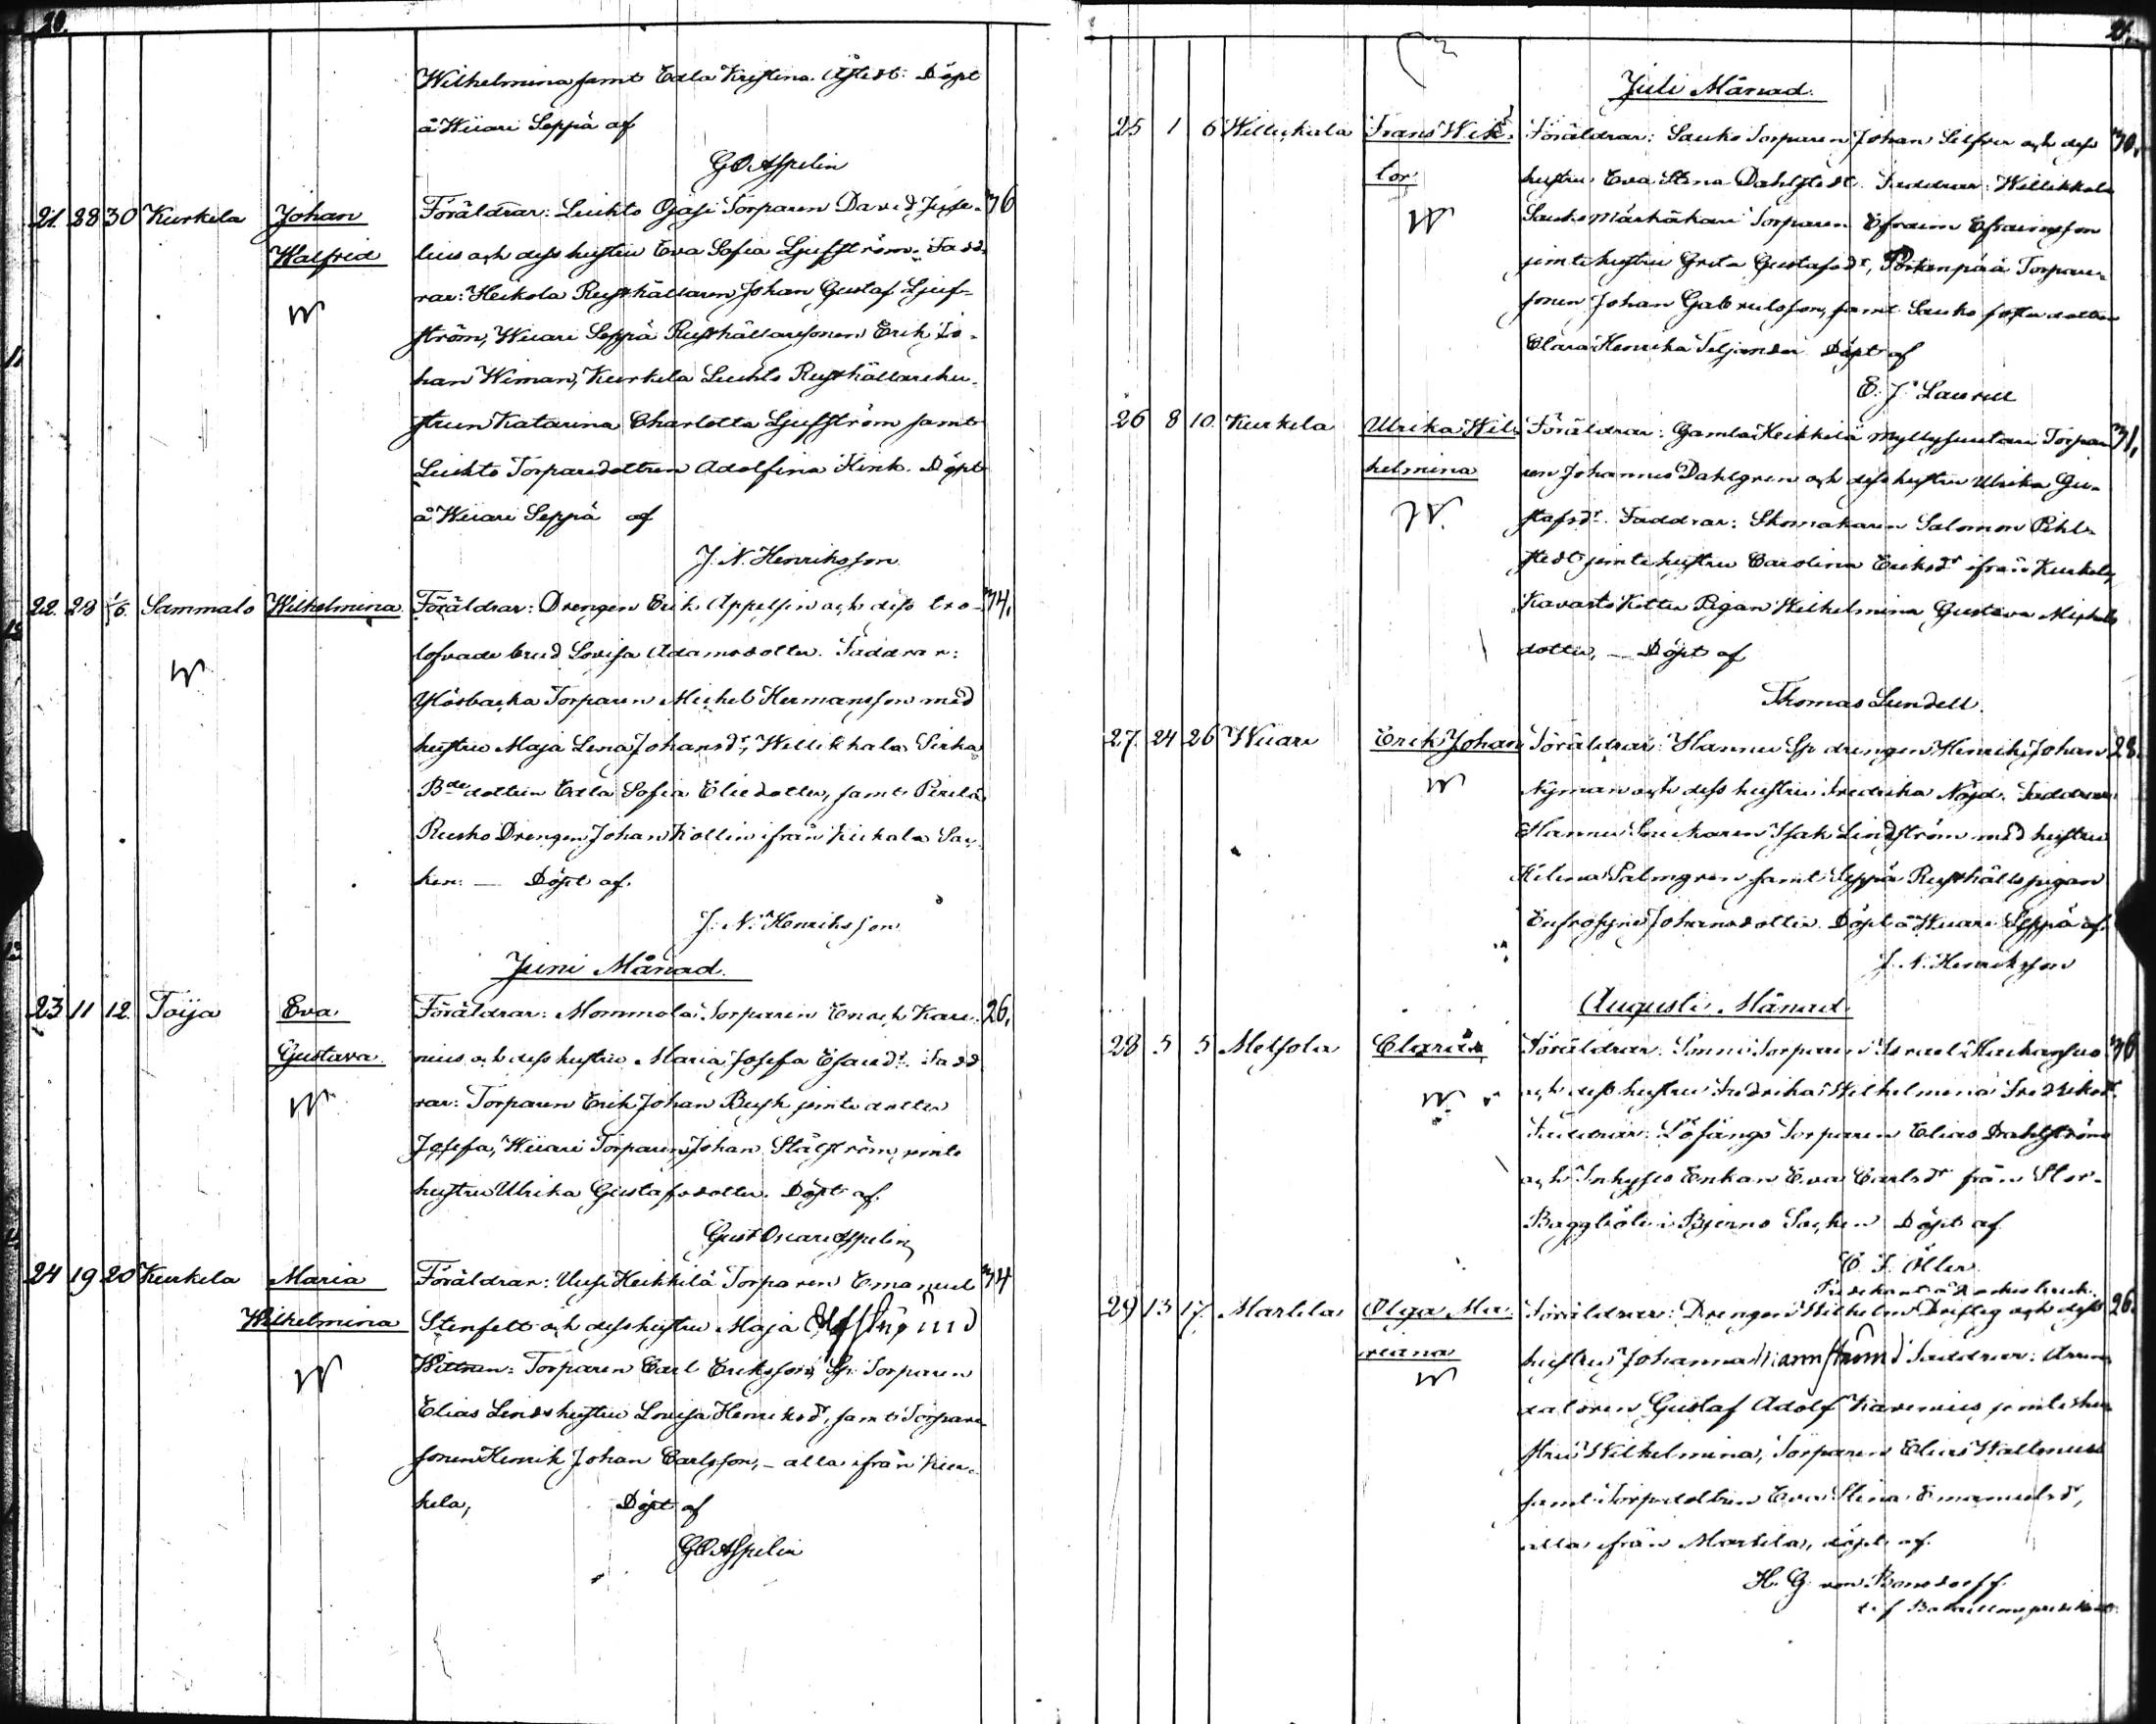 20.
Wilhelmina samt Edla Kristina Åstedt. Döpt
å Wiiari Seppä af
G O Aspelin
21. 28 30 Kurkela Johan Föräldrar: Luukto Ojasi Torparen David 36
Walfrid lius och dess hustru Eva Sofia Ljufström. Fadd-
rar: Heikola Rusthållaren Johan Gustaf Ljuf-
ström, Wiiari Seppä Rusthållaresonen Erik Jo-
han Wiman, Kurkela Luukto Rusthållarehu-
strun Katarina Charlotta Ljufström samt
Luukto Torparedottren Adolfina Hink. Döpt
å Wiiari Seppä af
J. N. Henriksson
22. 28 1/6. Sammalo Wilhelmina Föräldrar: Drengen Erik Appelsin och dess tro- 34,
lofvade brud Lovisa Adamsdotter. Faddrar:
Torparen Michel Hermansson med
hustru Maja Lena Johansdr, Willikkala Sirka
Bde dottren Edla Sofia Eliedotter, samt Perilä
Rusko Drengen Johan Kollin ifrån Kiikala Soc-
ken. — Döpt af
J. N. Henriksson
Juni Månad.
23 11 12. Toija Eva Föräldrar: Mommola Torparen Enoch Kare- 26,
Gustava nius och dess hustru Maria Josefa Esaiædr. Fadd
rar: Torparen Erik Johan Bush jemte dotter
Josefa, Wiiari Torparen Johan Stålström jemte
hustru Ulrika Gustafsdotter. Döpt af
Gust Oscar Aspelin
24 19 20 Kurkela Maria Föräldrar: Uusi Heikkilä Torparen Emanuel 34
Wilhelmina Stenfelt och dess hustru Maja
Wittnen: Torparen Carl Eriksson, Torparen
Elias Linds hustru Lovisa Henriksdr, samt Torpare
sonen Henrik Johan Carlsson, – alla ifrån Kur-
kela, Döpt af
G O Aspelin
21.
Juli Månad.
25 1 6 Willikkala Frans Wik- Föräldrar: Sauko Torparen Johan Silfver och dess 30,
tor hustru Eva Stina Dahlstedt. Faddrar: Willikkala
Sauko Märkäkari Torparen Efraim Efraimsson
jemte hustru Greta Gustafsdr, Torpare-
sonen Johan Gabrielsson, samt Sauko fosterdotter
Clara Henrika Seljander. Döpt af
E. J. Laurell
26 8 10 Kurkela Ulrika Wil- Föräldrar: Gamla Heikkilä Myllysuutari Torpar- 31,
helmina en Johannes Dahlgren och dess hustru Ulrika Gu-
stafsdr. Faddrar: Skomakaren Salomon Pihl-
stedt jemte hustru Carolina Eriksdr ifrån Kurkela,
Kavasto Kotter Pigan Wilhelmina Gustava Michels
dotter, — Döpt af
Thomas Lundell.
27. 24 26 Wiiari Erik Johan Föräldrar: Hannu Sp drengen Henrik Johan 28.
Nyman och dess hustru Fredrika Nöjd. Faddrar:
Hannu Isak Lindström med hustru
Helena Palmgren samt Seppä Rusthålls pigan
Eufrosyne Johansdotter. Döpt å Wiiari Seppä af
J. N. Henriksson
Augusti Månad
28 5 5 Metsola Clara Föräldrar: Torparen Israel 36
och dess hustru Fredrika Wilhelmina Fredriksdr.
Faddrar: Torparen Elias Dahlström
och Inhyses Enkan Eva Carlsdr från Stor-
Baggböle i Bjerno Socken Döpt af
29 13 17. Markila Olga Ma- Föräldrar: Drengen Wilhelm och dess 26.
riana hustru Johanna Faddrar:
Gustaf Adolf Karenius jemte hu-
stru Wilhelmina, Torparen Elias Wallenius
samt Torpdottren Eva Stina Emanuelsdr,
alla ifrån Markila, döpt af
H. G. von Bonsdorff